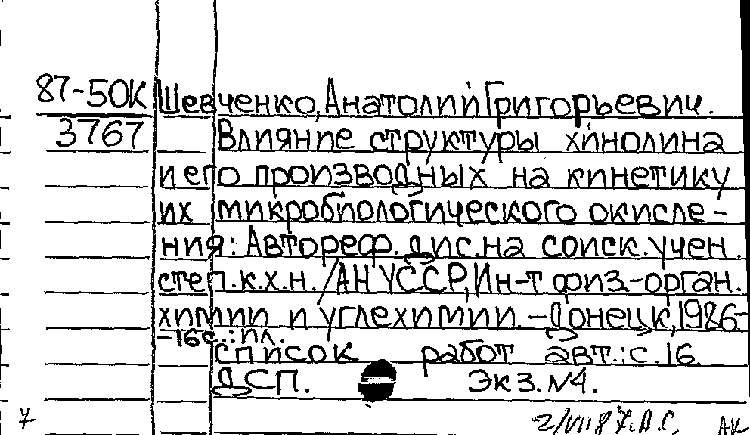 87-50К Шевченко, Анатолий Григорьевич.
3767 Влияние структуры хинолина
и его производных на кинетику
их микробиологического окисле-
ния: Автореф. дис. на соиск. учен.
степ. к.х.н. /АН УССР, Ин-т физ.-орган.
химии и углехимии. - Донецк, 1986-
-16с.: ил.
список работ авт.: с.16
ДСП. Экз. №4.